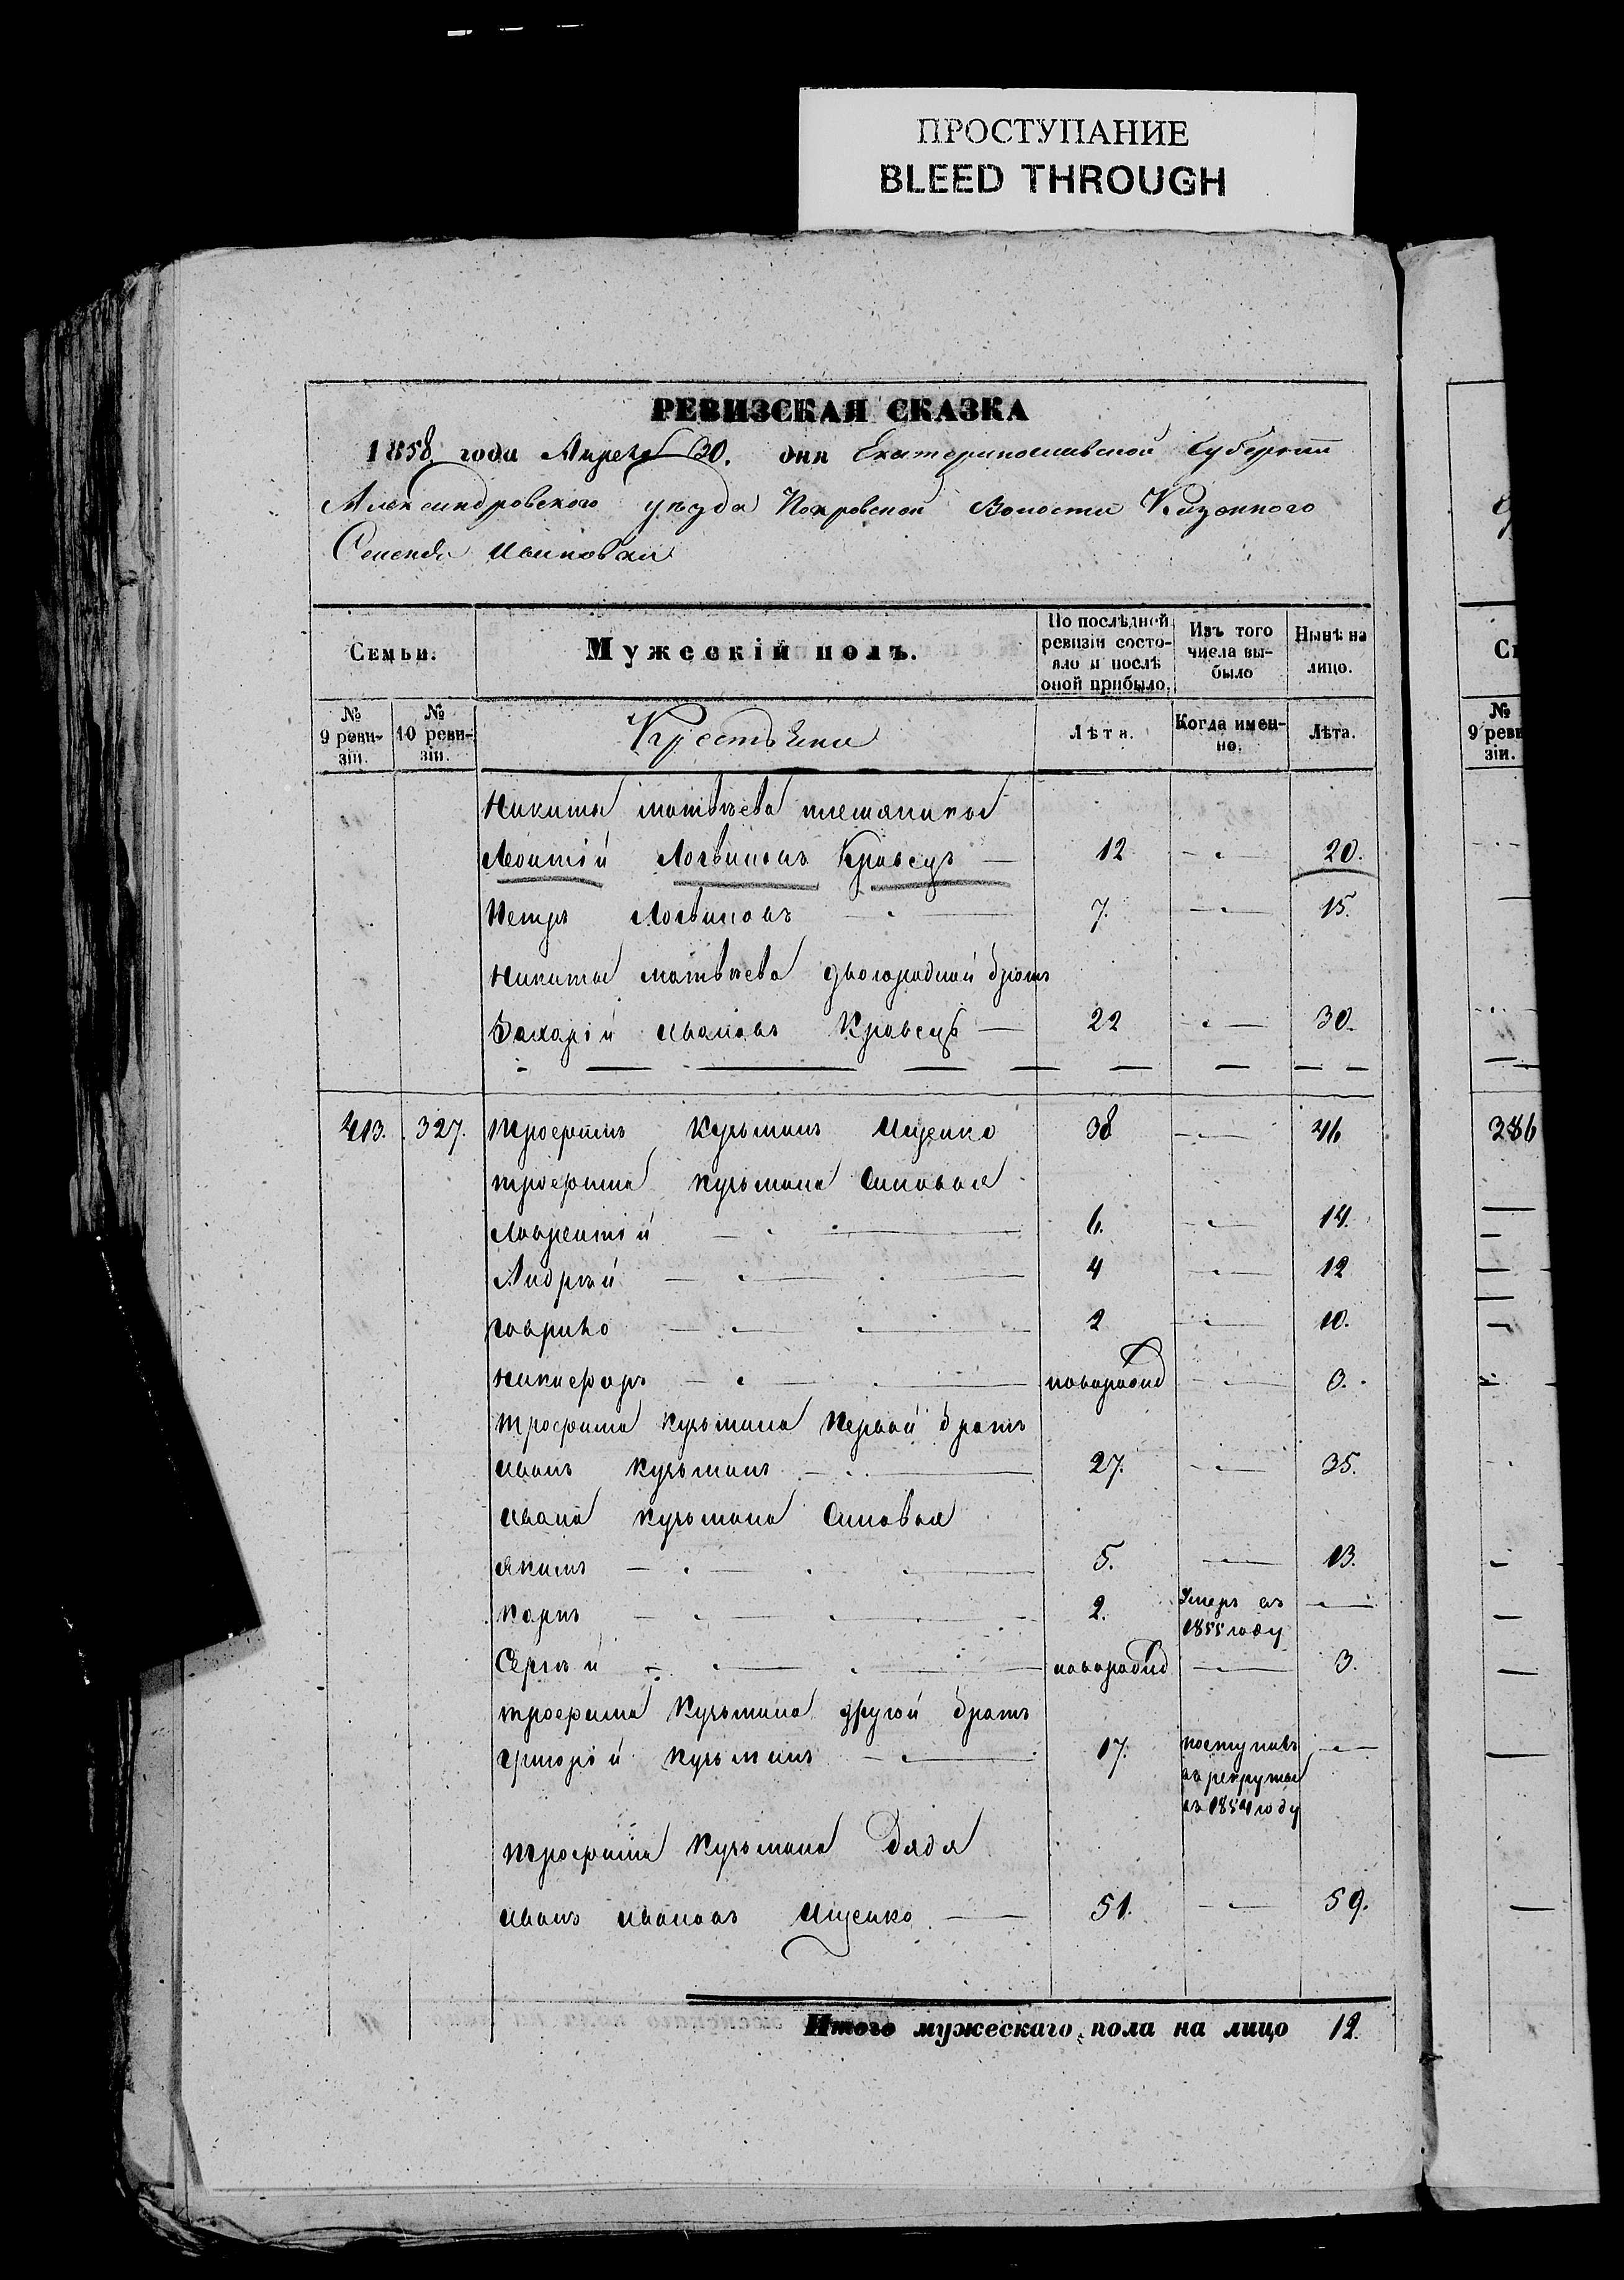 ПРОСТУПАНИЕ
BLEED THROUGH
РЕВИЗСКАЯ СКАЗКА
1858 года Апреля 30. дня Екатеринославской Губернии
Александровского уезда Покровской Волости Казенного
Селенія
Семьи.
Мужескій полъ.
По послѣдней ревизіи состояло и послѣ оной прибыло.
Изъ того числа выбыло
Ныне на лицо.
№ 9 ревизіи.
№ 10 ревизіи.
Крестьяне
Лѣта.
Когда именно.
Лѣта.
Никиты Матвѣева племянники
Леонтій Логвиновъ Кравецъ — 12 — 20.
Петръ Логвиновъ — 7. — 15.
Никиты Матвѣева двоюродной братъ
Захарій Ивановъ Кравецъ — 22 — 30.
413. 327. Трофимъ Кузьминъ Ищенко 38 — 46
Трофима Кузьмина Сыновья
Лаврентій — 6. — 14.
Андрѣй — 4 — 12
Гаврило — 2 — 10.
Никифоръ — новорожд — 3.
Трофима Кузьмина Первой братъ
Иванъ Кузьминъ — 27. — 35.
Ивана Кузьмина Сыновья
Якимъ — 5. — 13.
Карпъ — 2. Умеръ въ 1855 году —
Сергѣй — новорожд — 3.
Трофима Кузьмина другой братъ
Григорій Кузьминъ — 17. поступивъ въ рекруты въ 1854 году —
Трофима Кузьмина Дядя
Иванъ Ивановъ Ищенко — 51. — 59.
Итого мужескаго пола на лицо 12.
№ 9 реви
зіи.
386